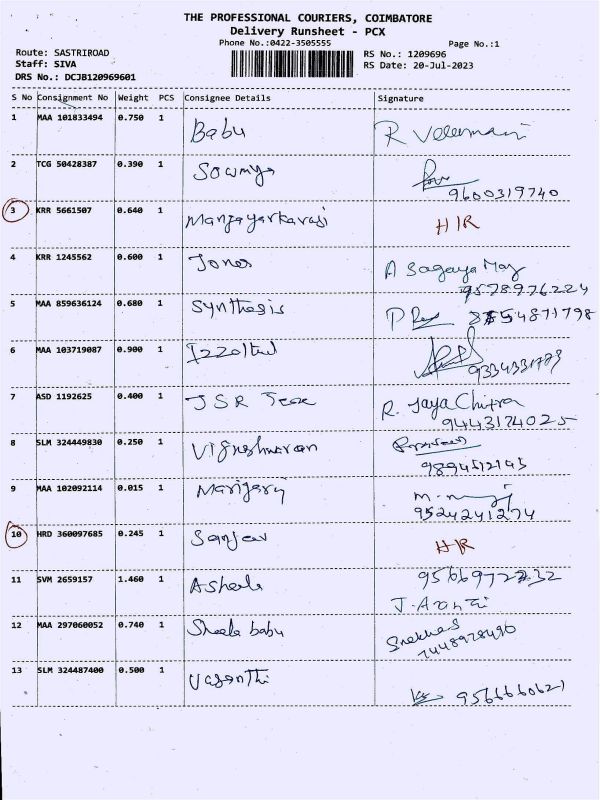 THE PROFESSIONAL COURIERS, COIMBATORE
Delivery Runsheet - PCX
Phone No.:0422-3505555
Page No.:1
Route: SASTRIROAD
RS No.: 1209696
Staff: SIVA
RS Date: 20-Jul-2023
DRS No.: DCJB120969601
S No Consignment No Weight PCS Consignee Details Signature
1 MAA 101833494 0.750 1 Babu R Veeramani
2 TCG 50428387 0.390 1 Sowmya
9600319740
3 KRR 5661507 0.640 1 Mangayarkarasi H/R
4 KRR 1245562 0.600 1 Jones A Sagaya Mary
9578976224
5 MAA 859636124 0.680 1 Synthesis
6 MAA 103719087 0.900 1
7 ASD 1192625 0.400 1 JSR R. Jaya Chitra
9443174025
8 SLM 324449830 0.250 1 Vigneshwaran
9894512145
9 MAA 102092114 0.015 1
9524241274
10 HRD 360097685 0.245 1 Sanjeev H/R
11 SVM 2659157 1.460 1
12 MAA 297060052 0.740 1 Sheela babu
13 SLM 324487400 0.500 1 Vasanthi